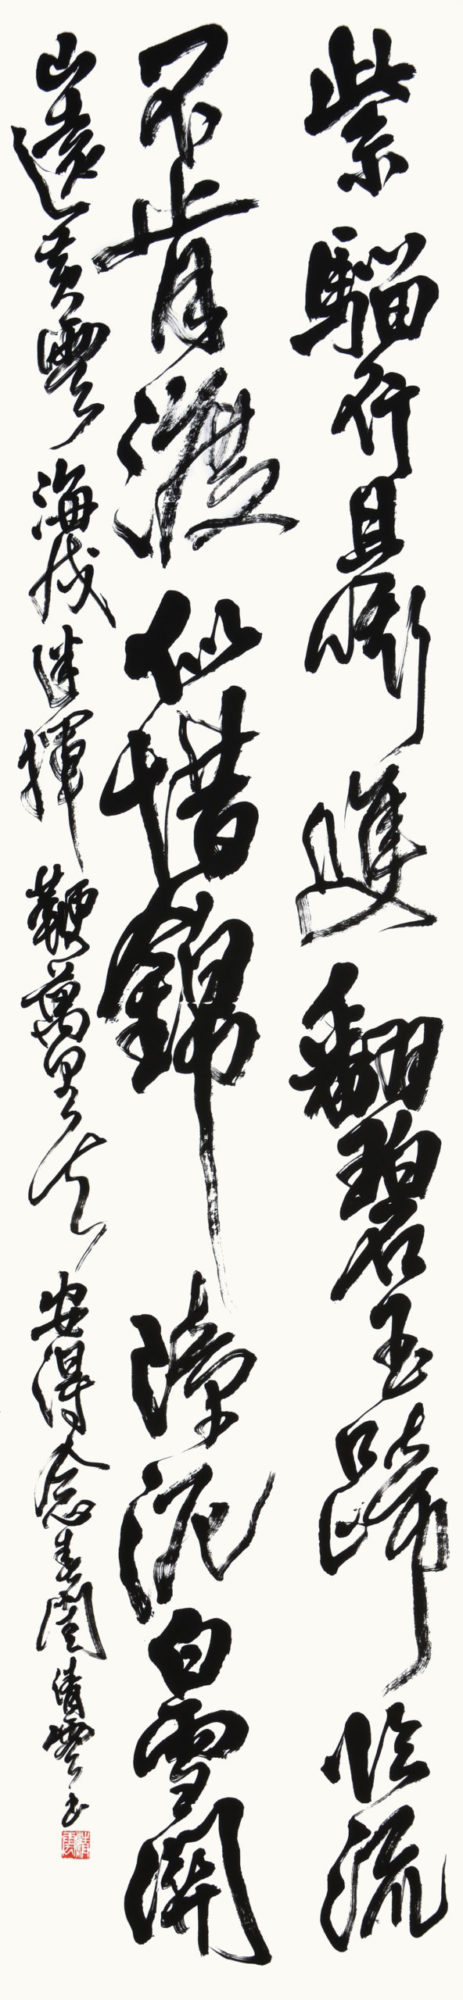 紫騮行且嘶雙翻碧玉蹄臨流
不肯渡似惜錦障泥白雪關
山遠黃雲海戍迷揮鞭萬里去安得念春閨雲書